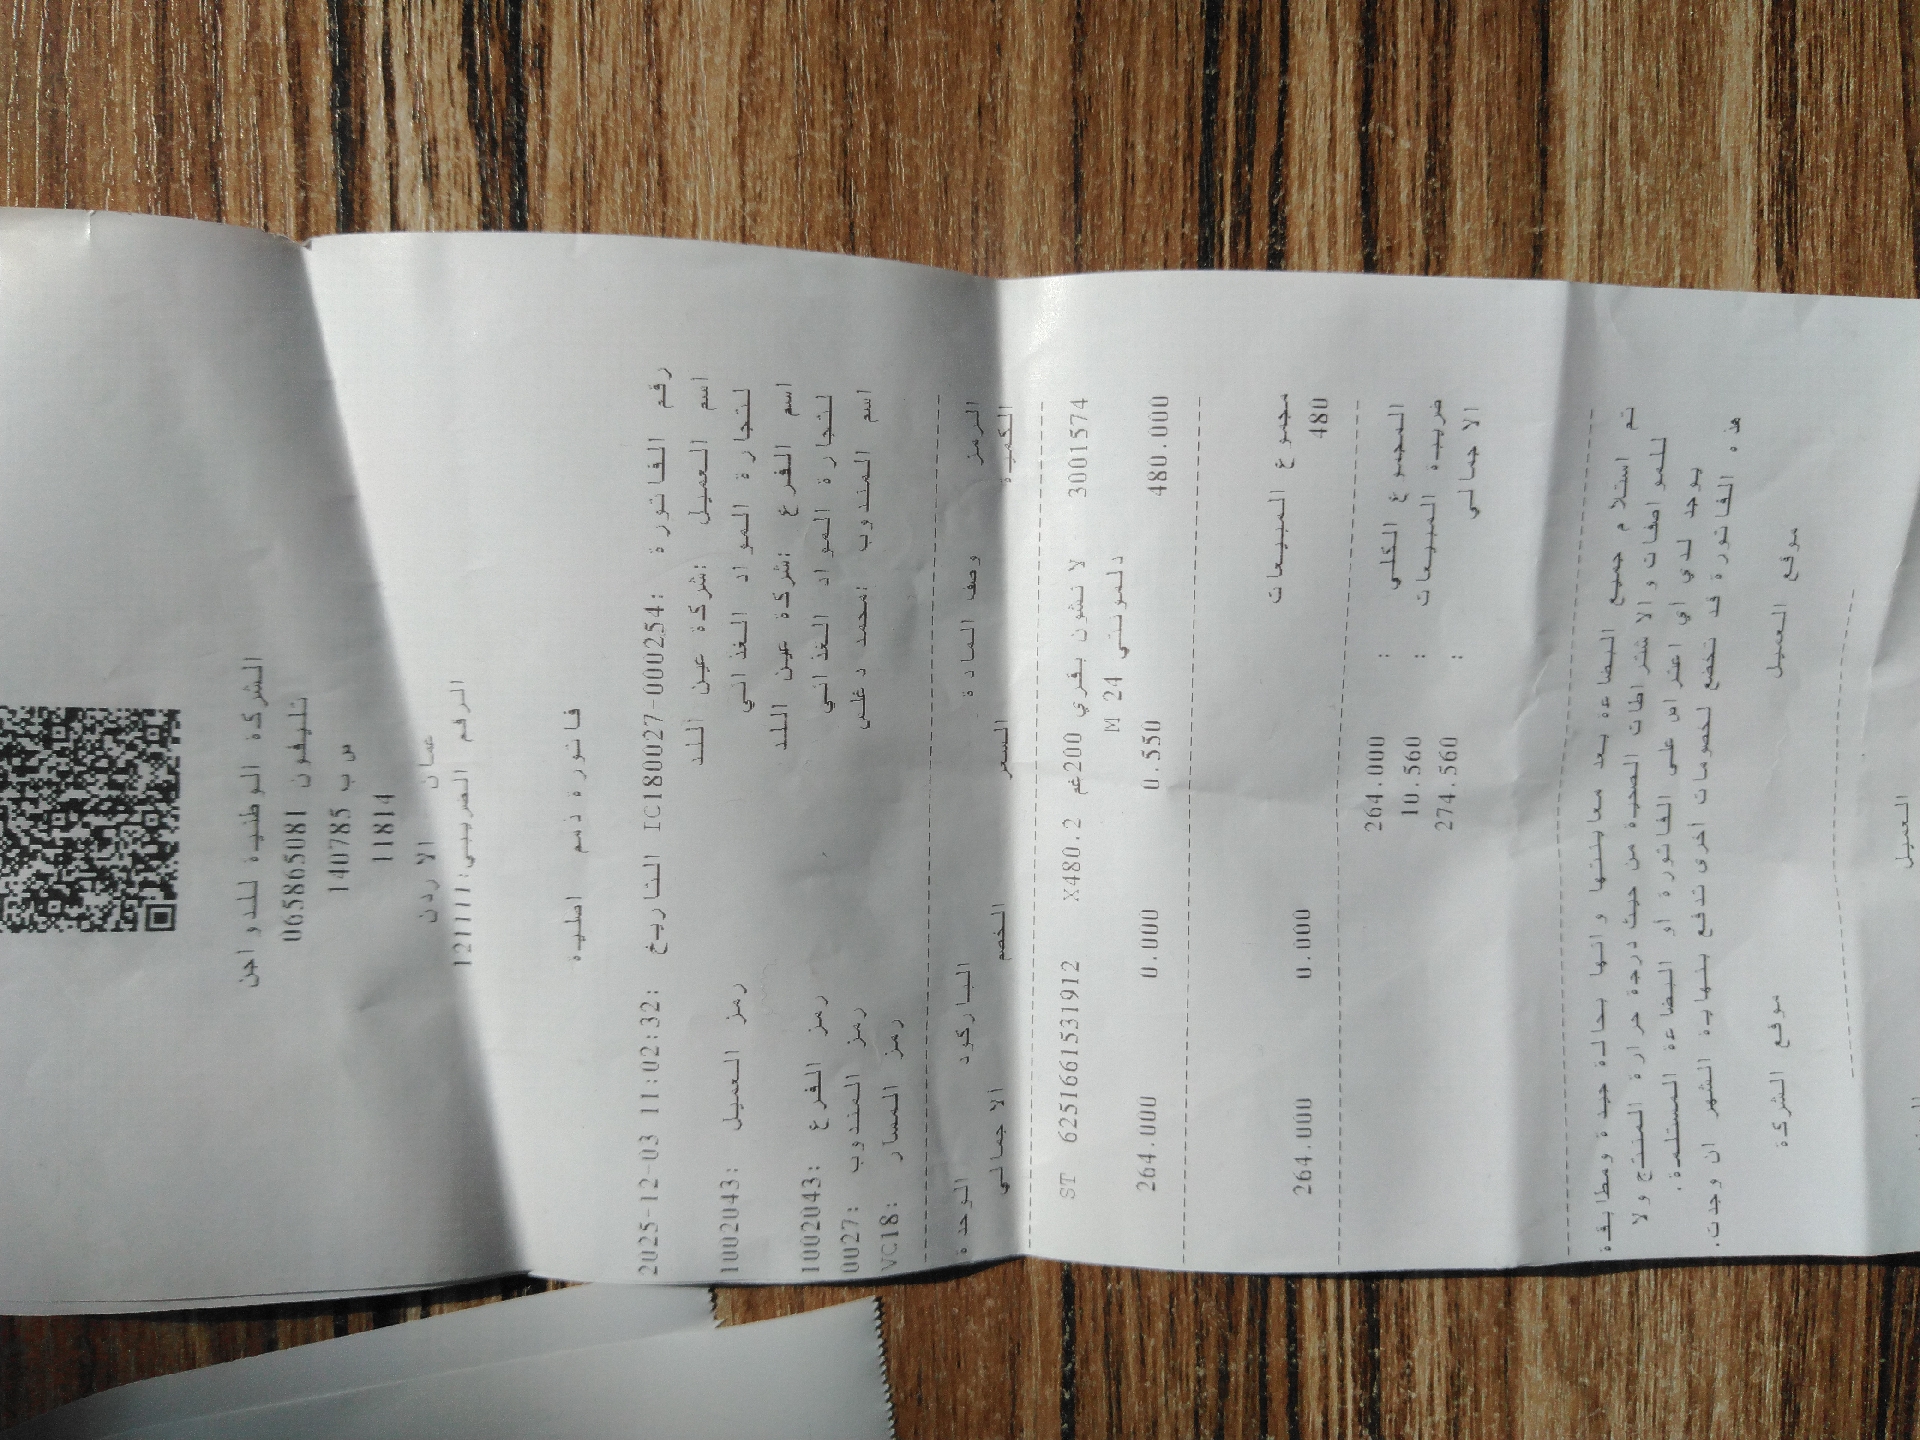 الشركة الوطنية للدواجن
تليفون 065865081
ص ب 140785
11814
عمان الاردن
الرقم الضريبي:121111
فاتورة ذمم اصلية
رقم الفاتورة :IC180027-000254 التاريخ :2025-12-03 11:02:32
اسم العميل :شركة عين اللد
لتجارة المواد الغذائي رمز العميل :1002043
اسم الفرع :شركة عين اللد
لتجارة المواد الغذائي رمز الفرع :1002043
اسم المندوب :محمد دغلس رمز المندوب :0027
رمز المسار :VC18
الرمز وصف المادة الباركود الوحدة
الكمية السعر الخصم الاجمالي
3001574 لانشون بقري 200غم X480.2 6251661531912 ST
دلمونتي 24 M
480.000 0.550 0.000 264.000
مجموع المبيعات
480 0.000 264.000
المجموع الكلي : 264.000
ضريبة المبيعات : 10.560
الاجمالي : 274.560
تم استلام جميع البضاعة بعد معاينتها وانها بحالة جيدة ومطابقة
للمواصفات والاشتراطات الصحية من حيث درجة حرارة المنتج ولا
يوجد لدي اي اعتراض على الفاتورة أو البضاعة المستلمة.
هذه الفاتورة قد تخضع لخصومات أخرى تدفع بنهاية الشهر ان وجدت.
موقع العميل موقع الشركة
العميل